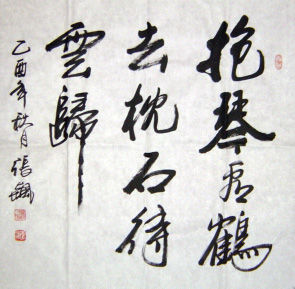 抱琴看鶴
去枕石待
雲歸
乙酉年秋月張